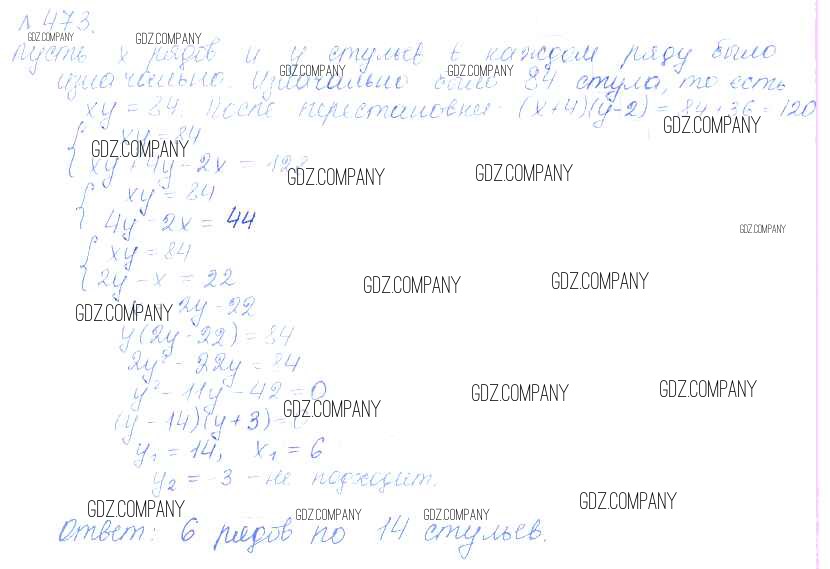 № 473.
GDZ.COMPANY
GDZ.COMPANY
Пусть x рядов и y стульев в каждом ряду было
GDZ.COMPANY
GDZ.COMPANY
изначально. Изначально было 84 стула, то есть
xy = 84. После перестановки: (x+4)(y-2) = 84+36 = 120
GDZ.COMPANY
xy = 84
GDZ.COMPANY
xy + 4y - 2x = 128
GDZ.COMPANY
GDZ.COMPANY
xy = 84
4y - 2x = 44
GDZ.COMPANY
xy = 84
2y - x = 22
GDZ.COMPANY
GDZ.COMPANY
2y - 22
GDZ.COMPANY
y(2y - 22) = 84
2y² - 22y = 84
y² - 11y - 42 = 0
GDZ.COMPANY
GDZ.COMPANY
GDZ.COMPANY
(y - 14)(y + 3) = 0
y₁ = 14, x₁ = 6
y₂ = -3 - не подходит.
GDZ.COMPANY
GDZ.COMPANY
GDZ.COMPANY
GDZ.COMPANY
Ответ: 6 рядов по 14 стульев.